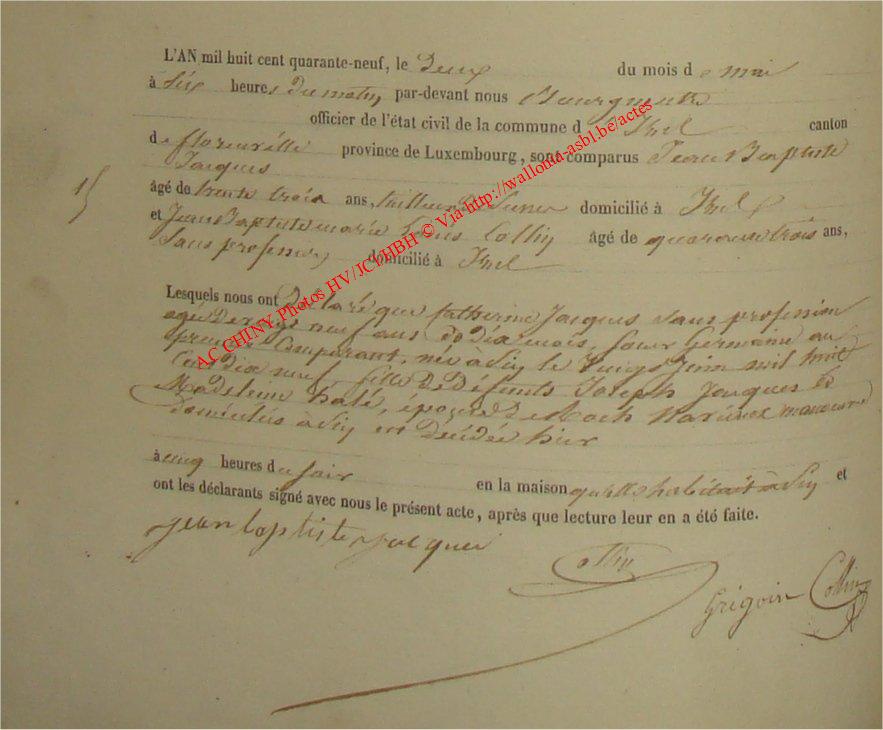 L'AN mil huit cent quarante-neuf, le Deux du mois de mai
à six heures du matin par-devant nous Bourgmestre
officier de l'état civil de la commune d'Izel canton
de florenville province de Luxembourg, sont comparus Jean Baptiste
Jacques
15
âgé de trente trois ans, tailleur de pierres domicilié à Izel
et Jean Baptiste marie Collin âgé de quarante trois ans,
Sans profession domicilié à Izel
Lesquels nous ont Déclaré que Catherine Jacques sans profession
agée De vingt neuf ans dix mois, soeur Germaine au
premier Comparant, née à le vingt Juin mil huit
Cent dix neuf, fille De Défunts Joseph Jacques et
Madeleine halé, épouse De Roch manoeuvre
domiciliés à est Décédée hier
à cinq heures du soir en la maison qu'elle habitait à et
ont les déclarants signé avec nous le présent acte, après que lecture leur en a été faite.
jean baptiste jacques
Collin
Grégoire Collin
AC CHINY, Photos HV/JCT/HBH © Via http://wallonia-asbl.be/actes